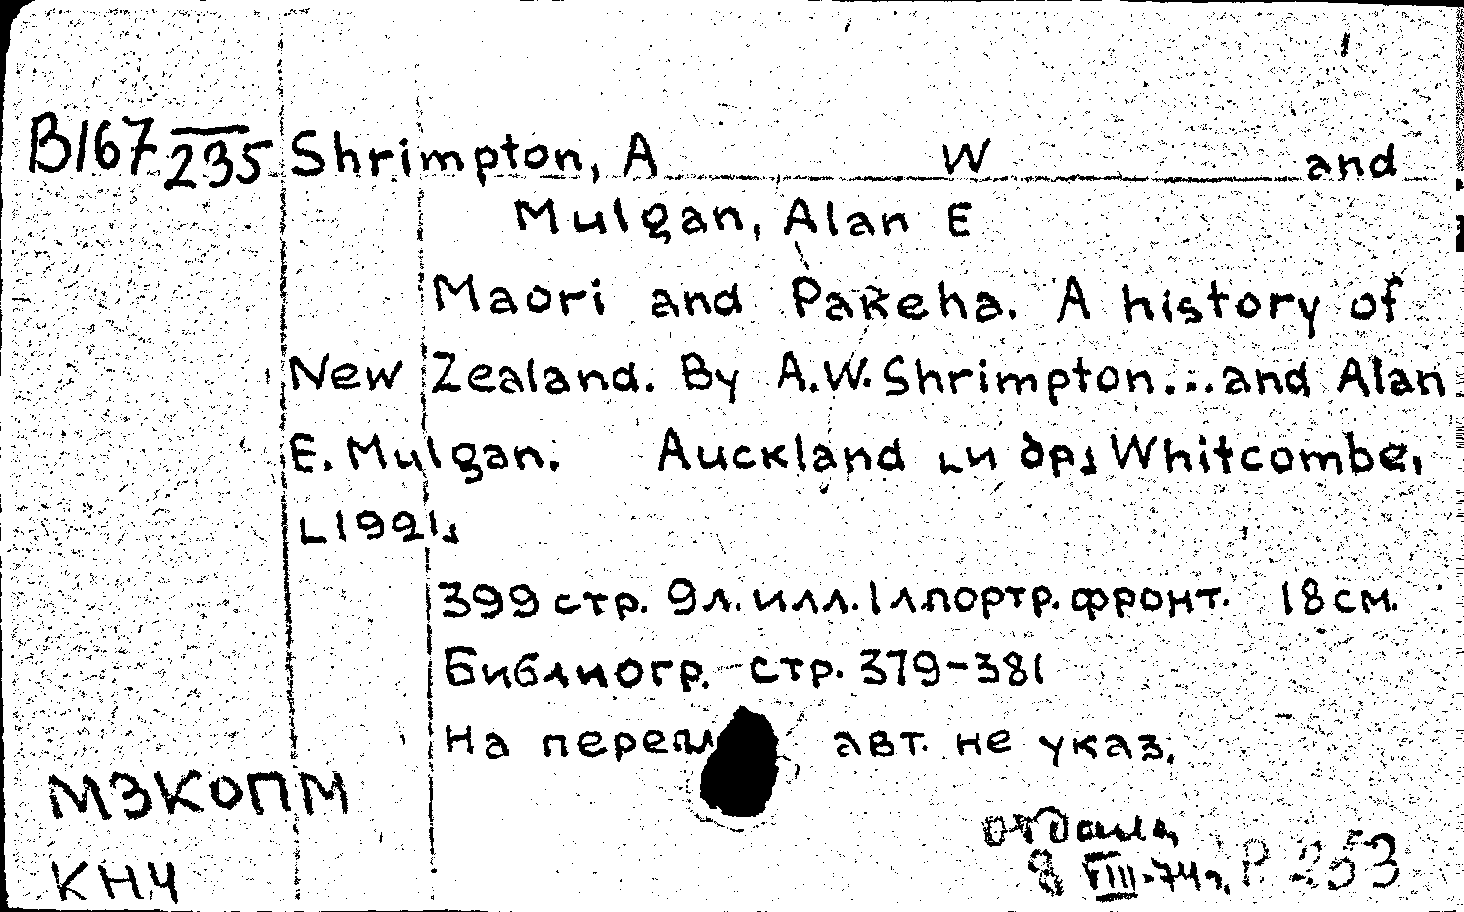 B167 235 Shrimpton, A W and
Mulgan, Alan E
Maori and Pakeha. A history of
New Zealand. By A.W. Shrimpton...and Alan
E. Mulgan. Auckland [и др] Whitcombe,
[1921]
399 стр. 9 л. илл. 1 л. портр. фронт. 18 см.
Библиогр. стр. 379-381
На перепл авт. не указ.
МЗКОПМ
отдала
КНЧ 8 VIII-74 г. P 253